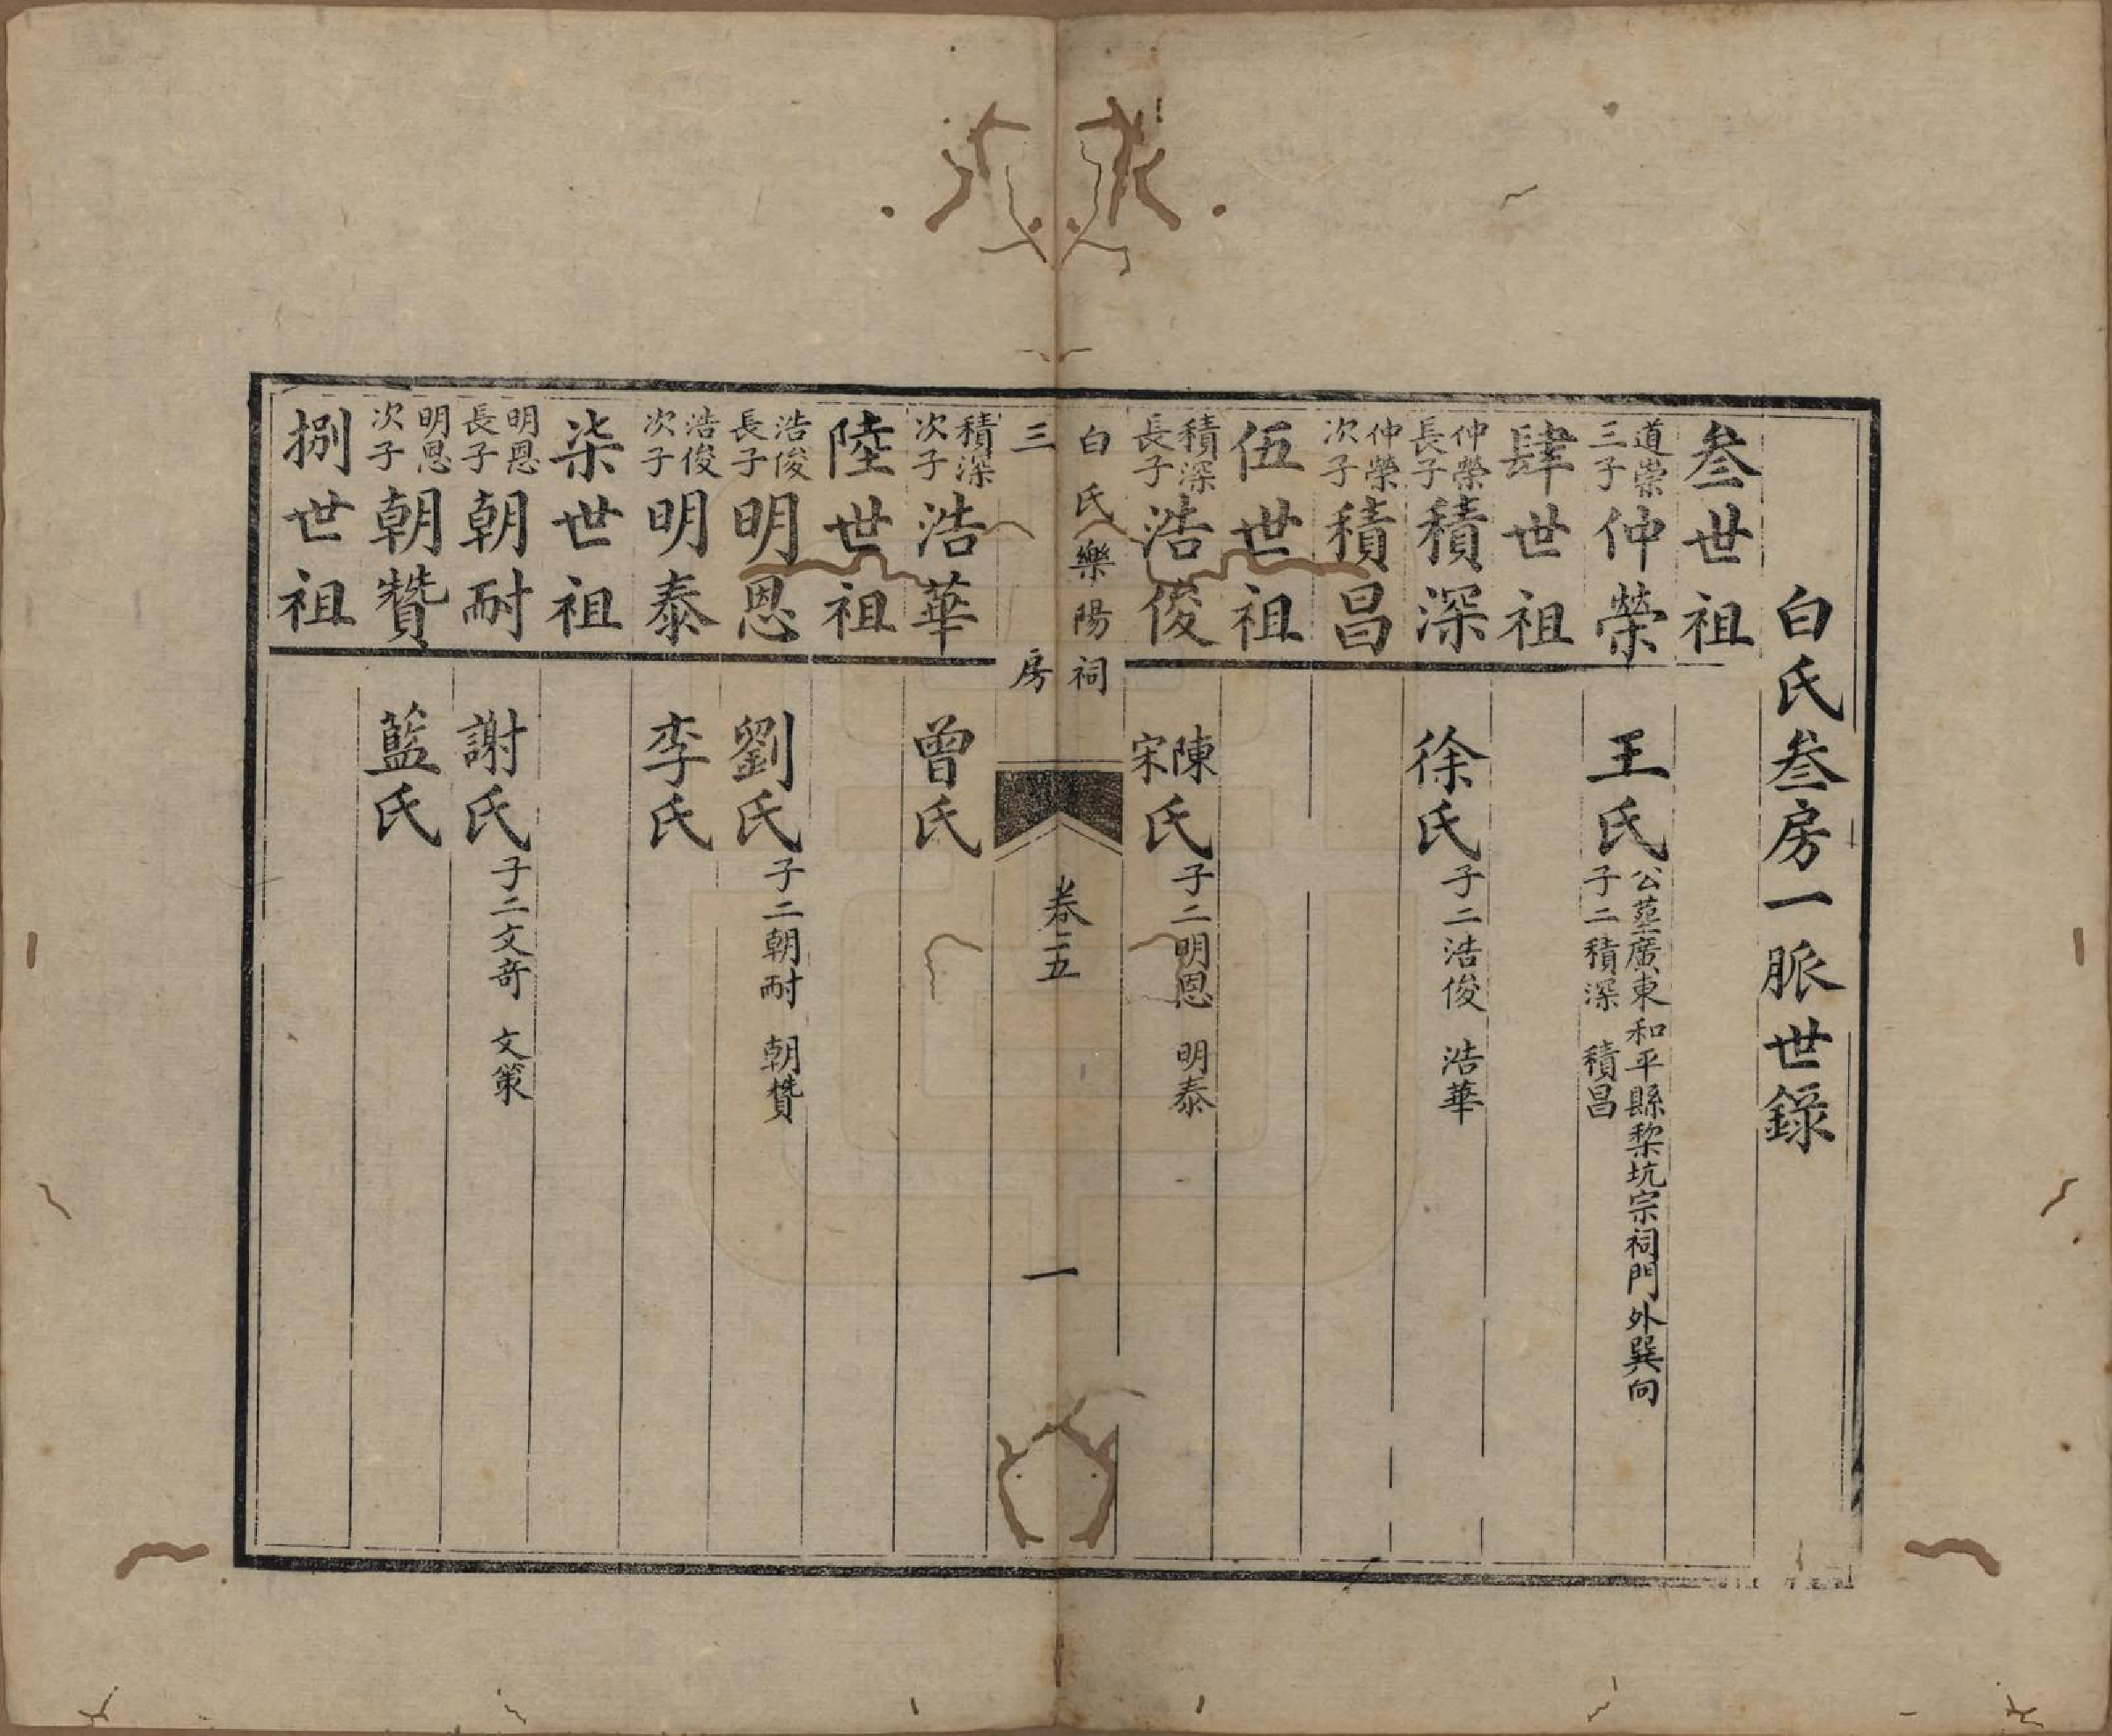 白氏叁房一脈世錄
叁世祖
道崇三子 仲榮 王氏 公塟廣東和平縣黎坑宗祠門外巽向
子二積深 積昌
肆世祖
仲榮長子 積深 徐氏 子二浩俊 浩華
仲榮次子 積昌
伍世祖
積深長子 浩俊 陳宋氏 子二明恩 明泰
白氏樂陽祠
三房
卷五
一
積深次子 浩華 曾氏
陸世祖
浩俊長子 明恩 劉氏 子二朝耐 朝贊
浩俊次子 明泰 李氏
柒世祖
明恩長子 朝耐 謝氏 子二文奇 文策
明恩次子 朝贊 藍氏
捌世祖